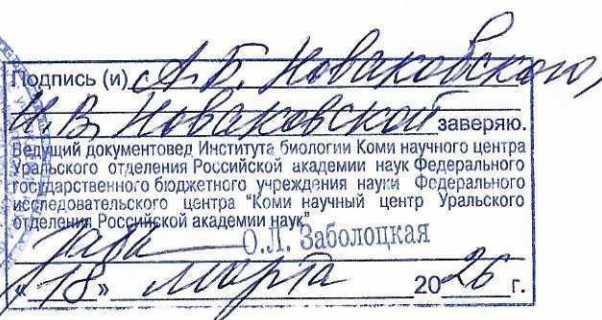 Подпись (и) А.Б. Новаковского,
И.В. Новаковской заверяю.
Ведущий документовед Института биологии Коми научного центра
Уральского отделения Российской академии наук Федерального
государственного бюджетного учреждения науки Федерального
исследовательского центра "Коми научный центр Уральского
отделения Российской академии наук"
О.Л. Заболоцкая
«18» марта 2026 г.